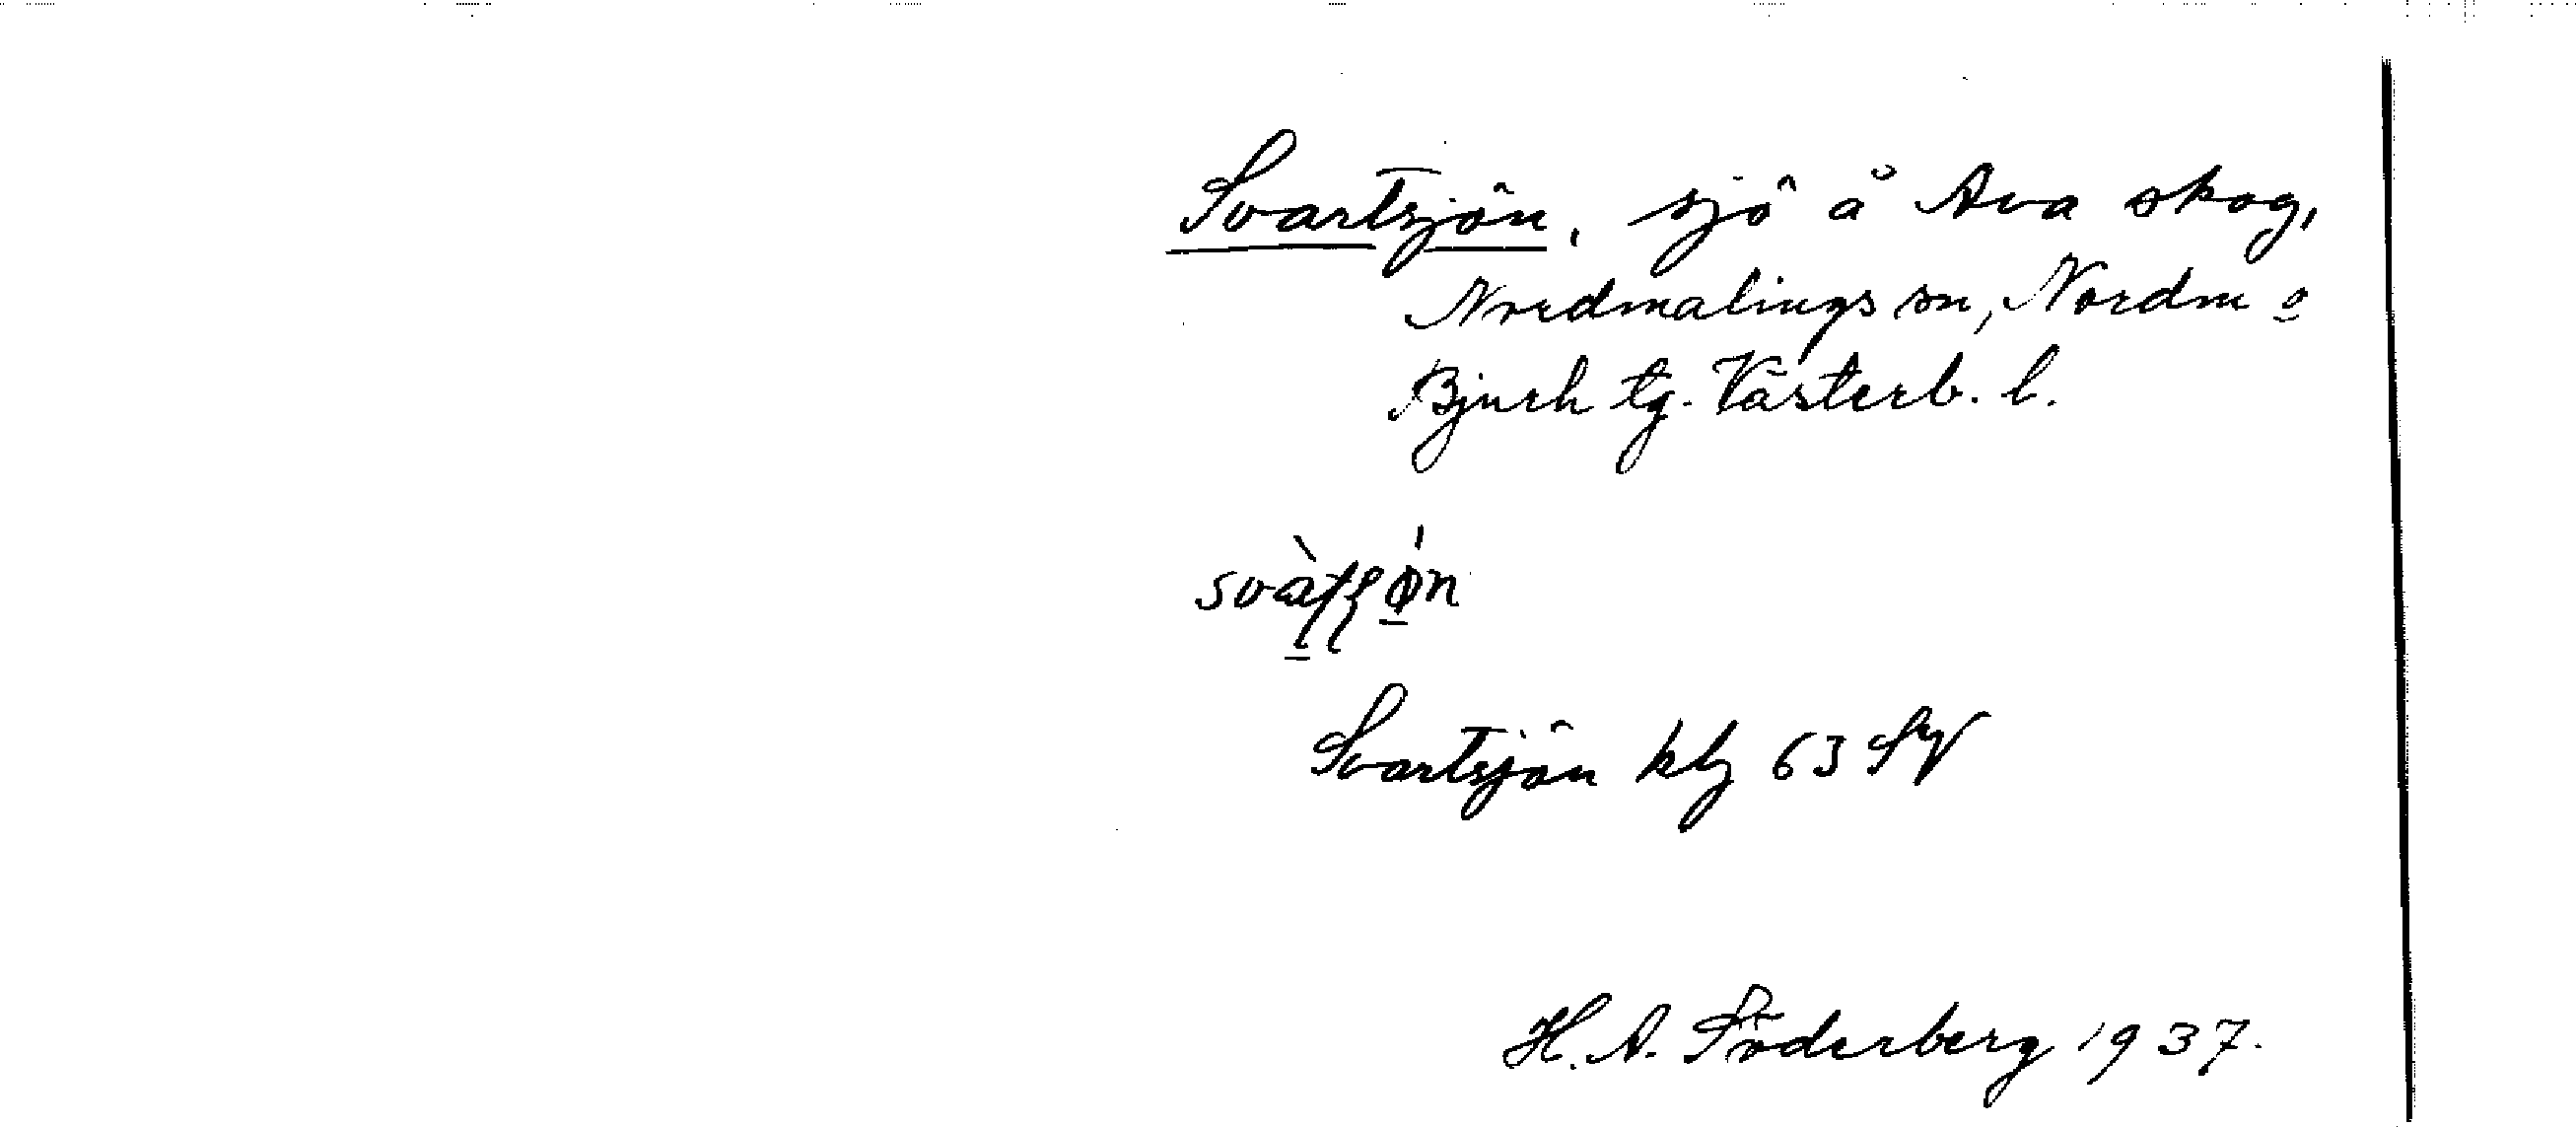 Svartsjön, sjö å Ava skog,
Nordmalings sn, Nordm o
Bjurh tg. Västerb. l.
Svartsjön kbl 63 SV
H. A. Söderberg 1937.